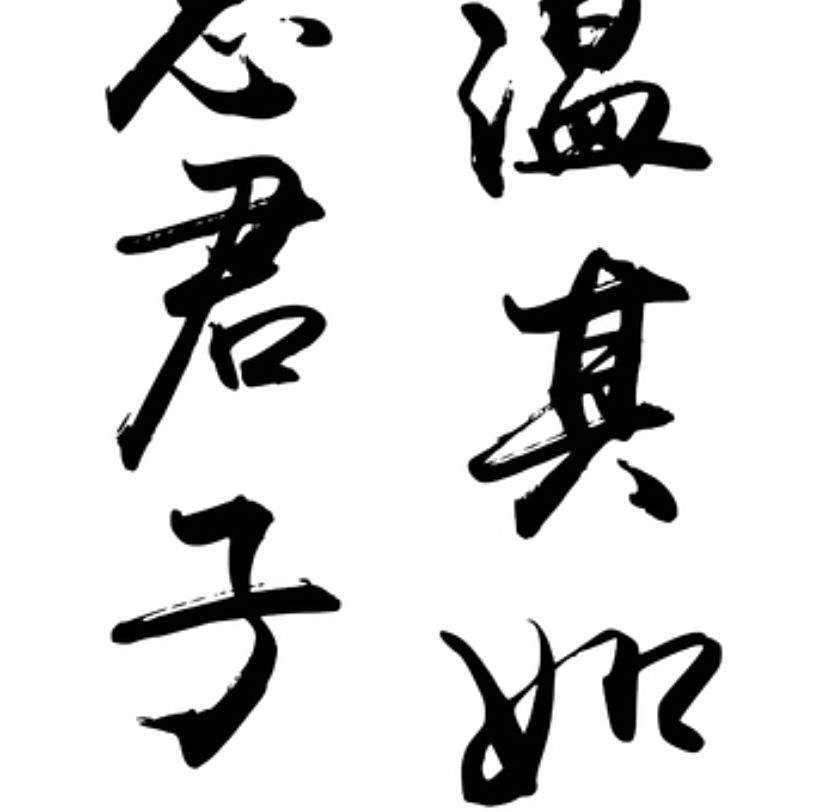 温其如
念君子